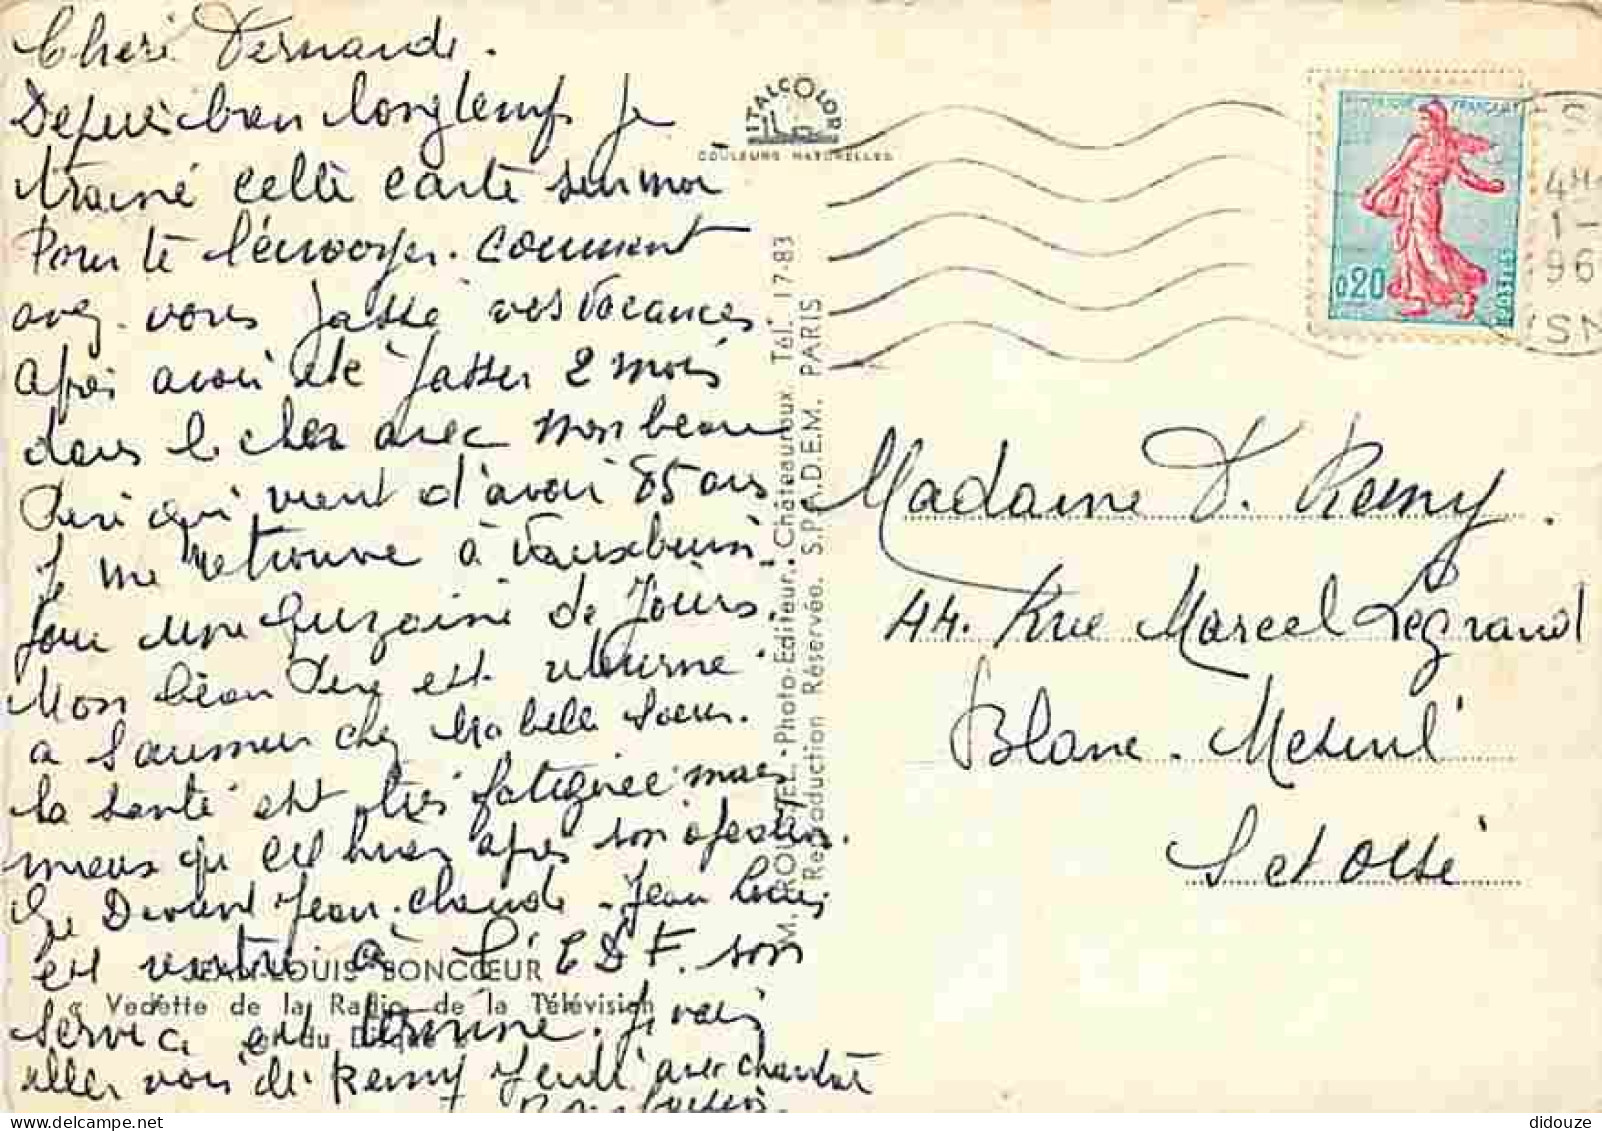 Cheré Fernande.
Depuis bien longtemps je
traine cette carte sur moi
Pour te l'envoyer. Comment
avez. vous passé vos vacances.
après avoir été passer 2 mois
dans le cher avec mon beau
Père qui vient d'avoir 85 ans
Je me retrouve à Vauxbuin.
Pour une quinzaine de jours
Mon beau Père est retourné
a Saumur chez ma belle soeur.
la santé est très fatiguée mais
mieux qu'cet hiver après son opestion.
Jean. claude. Jean Louis
est rentré à L'EDF. son
service est terminé. Je vais
aller voir dé Remy Jeudi avec chantal
ITALCOLOR
COULEURS NATURELLES
M. ROUSSEL - Photo-Editeur. Châteauroux. Tél. 17-83
Reproduction Réservée. S.P.A.D.E.M. PARIS
JEAN-LOUIS BONCŒUR
Vedette de la Radio, de la Télévision
et du Disque
REPUBLIQUE FRANÇAISE
0,20
POSTES
Madame F. Remy.
44. Rue Marcel Legrand
Blanc. Mesnil
S et Oise
didouze